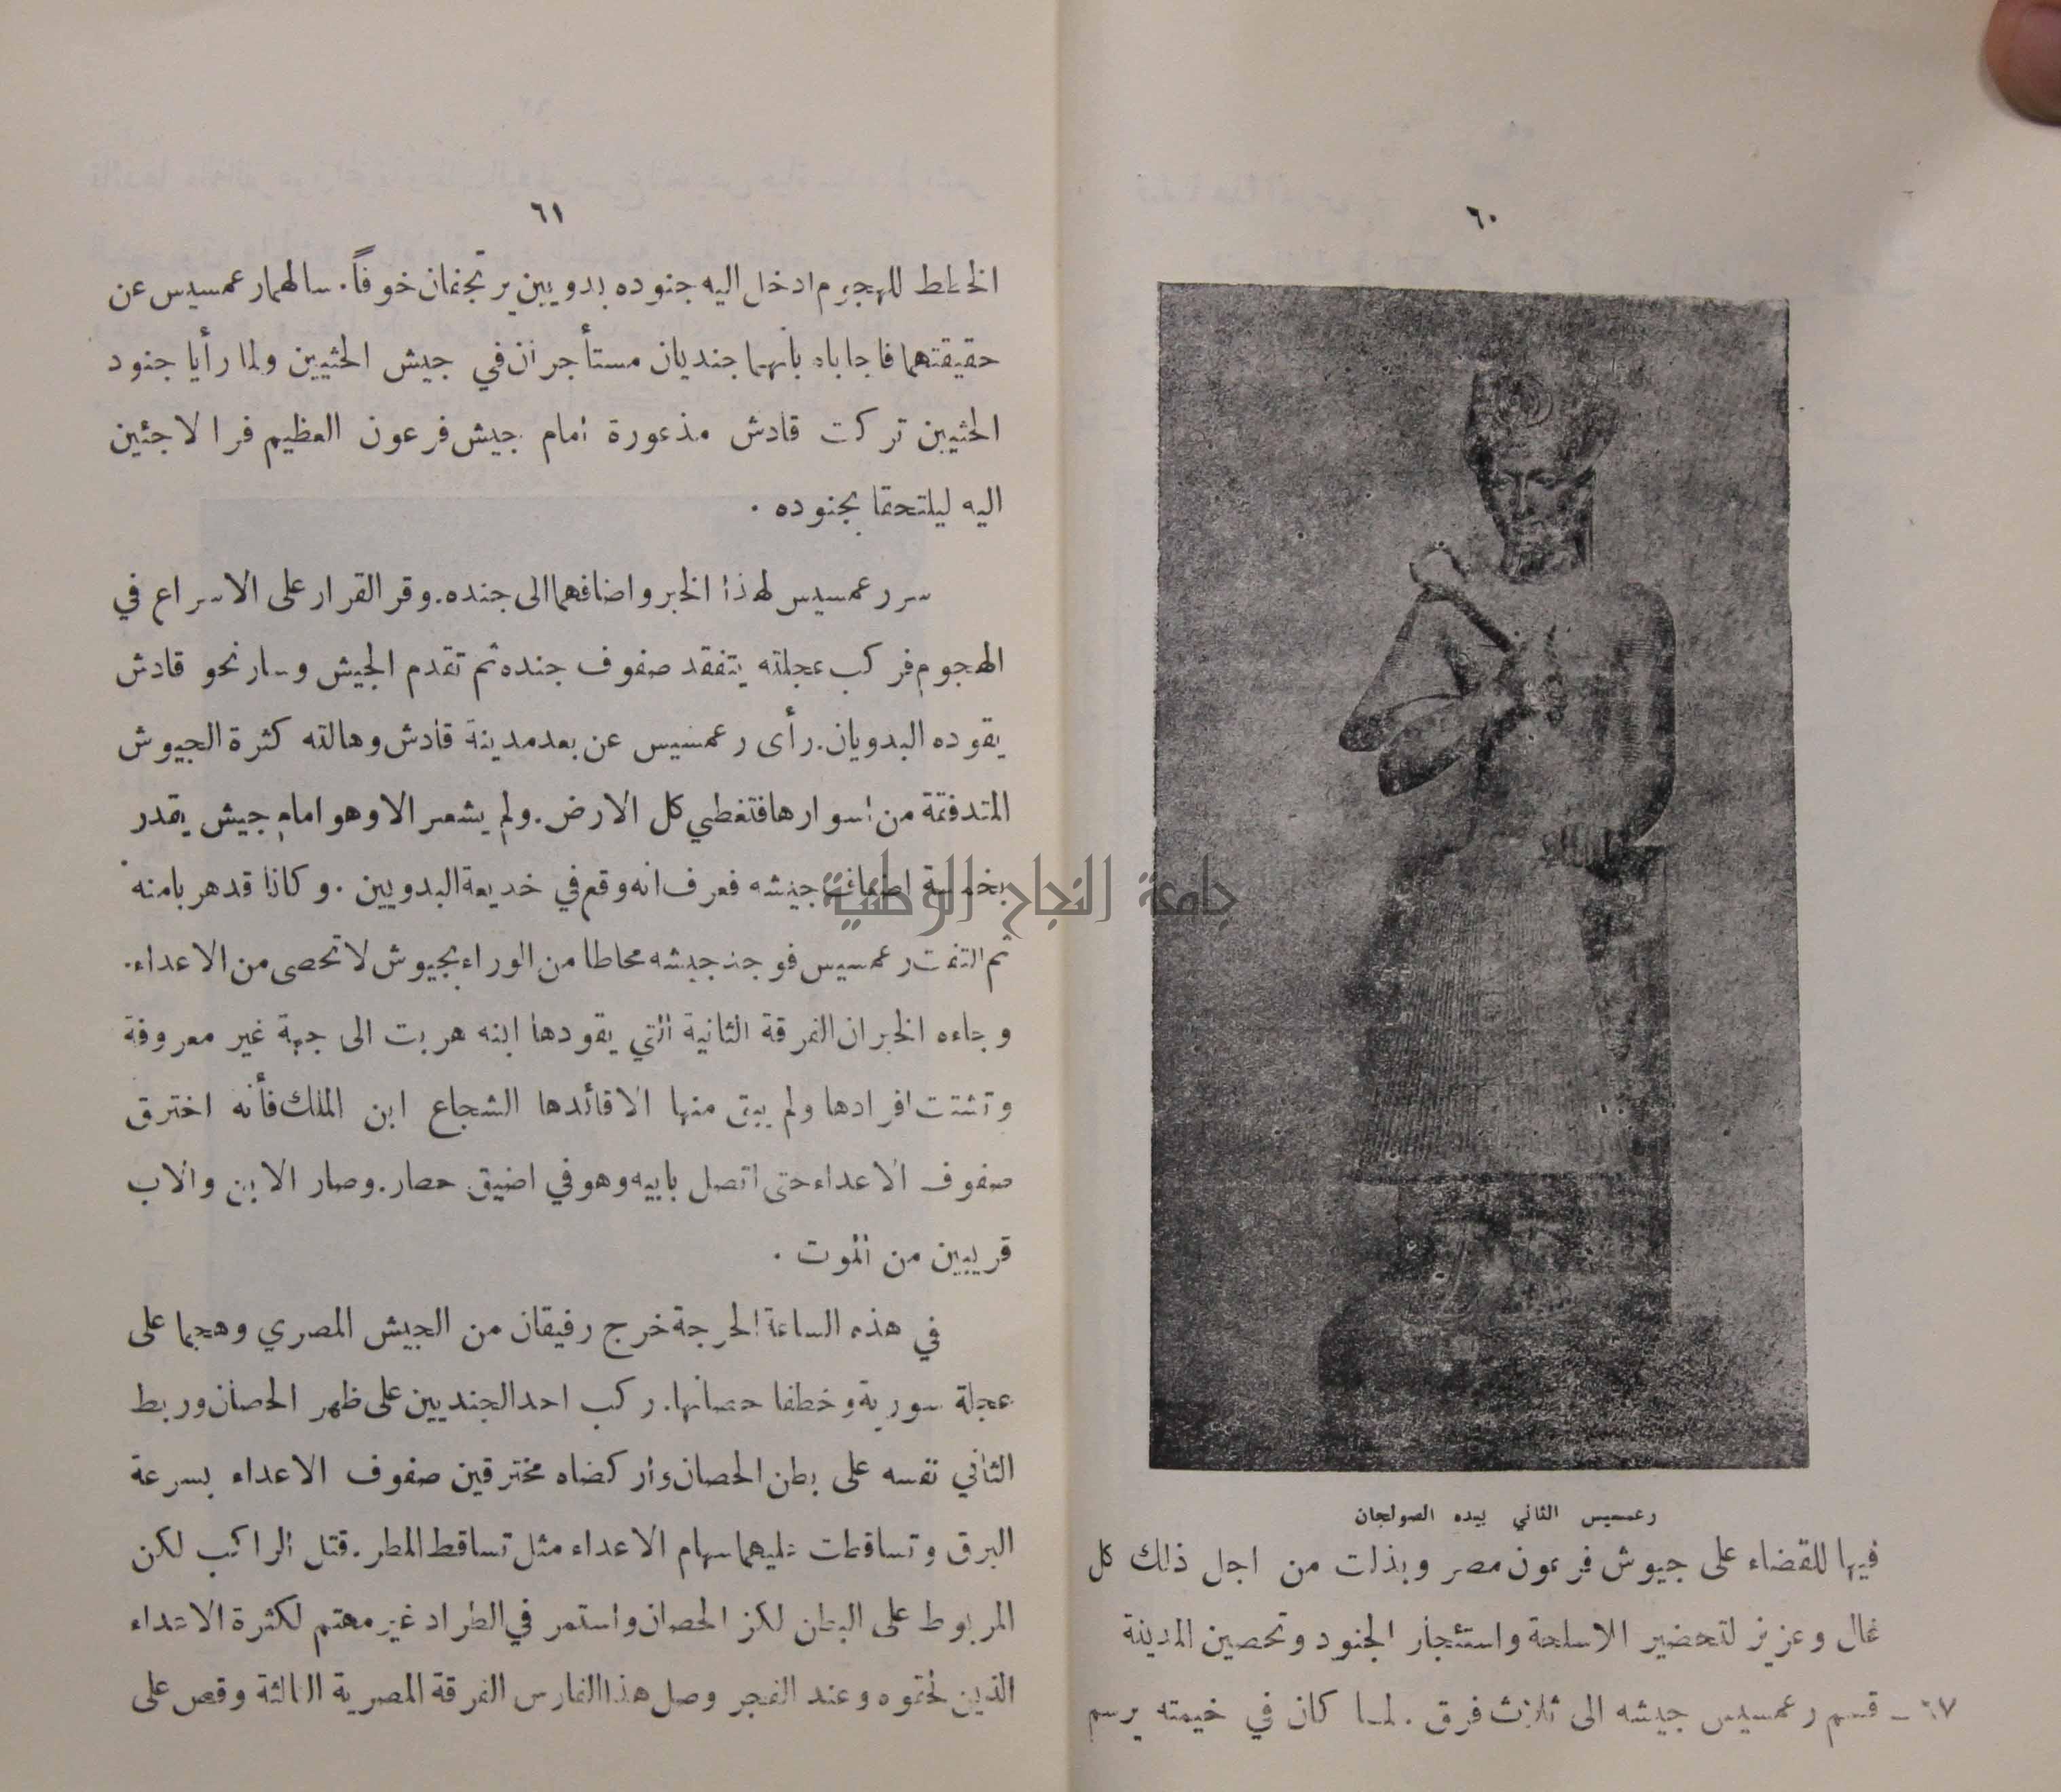 ٦٠
رعمسيس الثاني بيده الصولجان
فيها للقضاء على جيوش فرعون مصر وبذلت من اجل ذلك كل
غال وعزيز لتحضير الاسلحة واستئجار الجنود وتحصين المدينة
٦٧ ـ قسم رعمسيس جيشه الى ثلاث فرق . لما كان في خيمته يرسم
٦١
الخطط للهجوم ادخل اليه جنوده بدويين يرتجفان خوفاً. سالهما رعمسيس عن
حقيقتهما فاجاباه بأنهما جنديان مستأجران في جيش الحثيين ولما رأيا جنود
الحثيين تركت قادش مذعورة امام جيش فرعون العظيم فرا لاجئين
اليه ليلتحقا بجنوده .
سر رعمسيس لهذا الخبر واضافهما الى جنده. وقر القرار على الاسراع في
الهجوم فركب عجلته يتفقد صفوف جنده ثم تقدم الجيش وسار نحو قادش
يقوده البدويان. رأى رعمسيس عن بعد مدينة قادش وهالته كثرة الجيوش
المتدفقة من اسوارها فتغطي كل الارض. ولم يشعر الا وهو امام جيش يقدر
بخمسة اضعاف جيشه فعرف انه وقع في خديعة البدويين . وكانا قد هربا منه
ثم التفت رعمسيس فوجد جيشه محاطا من الوراء بجيوش لا تحصى من الاعداء.
وجاءه الخبر ان الفرقة الثانية التي يقودها ابنه هربت الى جهة غير معروفة
وتشتت افرادها ولم يبق منها الا قائدها الشجاع ابن الملك فأنه اخترق
صفوف الاعداء حتى اتصل بابيه وهو في اضيق حصار. وصار الابن والاب
قريبين من الموت .
في هذه الساعة الحرجة خرج رفيقان من الجيش المصري وهجما على
عجلة سورية وخطفا حصانها. ركب احد الجنديين على ظهر الحصان وربط
الثاني نفسه على بطن الحصان واركضاه مخترقين صفوف الاعداء بسرعة
البرق وتساقطت عليهما سهام الاعداء مثل تساقط المطر. قتل الراكب لكن
المربوط على البطن لكز الحصان واستمر في الطراد غير مهتم لكثرة الاعداء
الذين لحقوه وعند الفجر وصل هذا الفارس الفرقة المصرية الثالثة وقص على
جامعة النجاح الوطنية